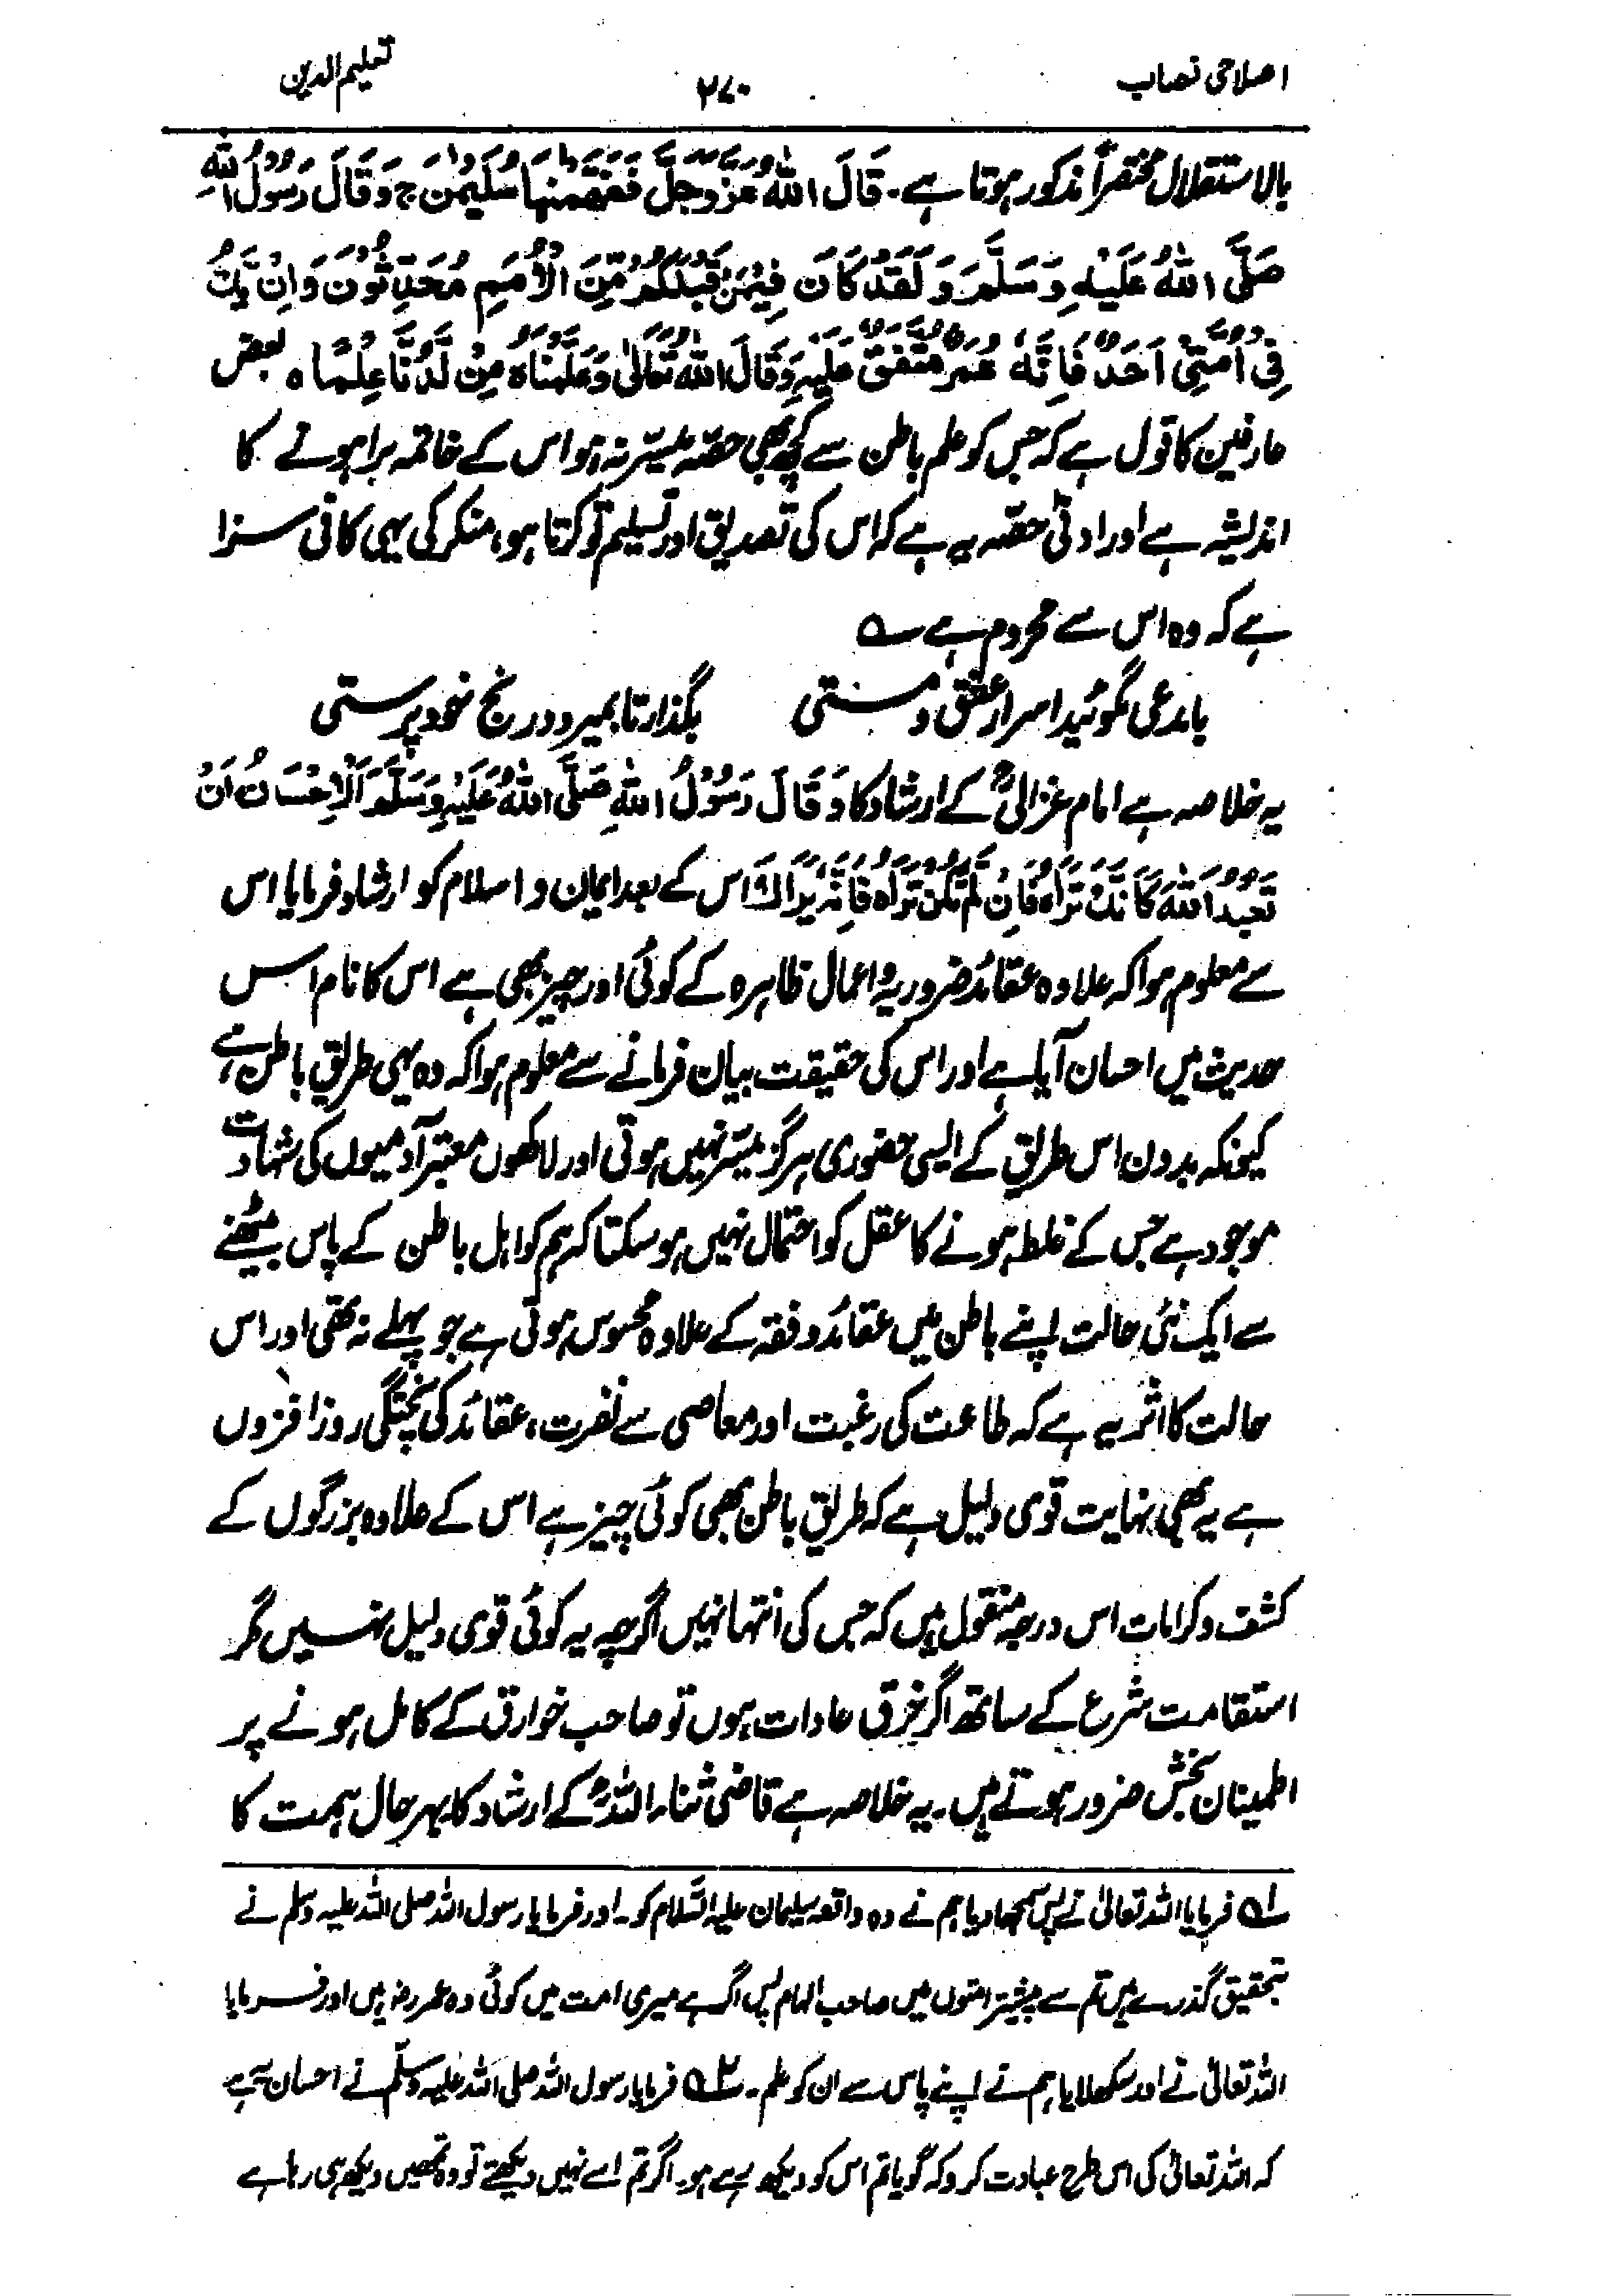 اصلاحی نصاب
۲۷۰
تعلیم الدین
بالاستقلال مختصراً مذکور ہوتا ہے۔ قَالَ اللّٰہُ عَزَّوَجَلَّ فَفَهَّمْنٰهَا سُلَیْمٰنَ ج وَقَالَ رَسُوْلُ اللّٰہِ
صَلَّی اللّٰہُ عَلَیْہِ وَسَلَّمَ وَلَقَدْ کَانَ فِیْمَنْ قَبْلَکُمْ مِّنَ الْاُمَمِ مُحَدَّثُوْنَ وَاِنْ یَّکُ
فِیْ اُمَّتِیْ اَحَدٌ فَاِنَّهٗ عُمَرُ مُتَّفَقٌ عَلَیْہِ وَقَالَ اللّٰہُ تَعَالٰی وَعَلَّمْنَاہُ مِنْ لَّدُنَّا عِلْمًا ه بعض
عارفین کا قول ہے کہ جس کو علم باطن سے کچھ بھی حصّہ میسّر نہ ہو اس کے خاتمہ برا ہونے کا
اندیشہ ہے اور ادنٰی حصّہ یہ ہے کہ اس کی تصدیق اور تسلیم تو کرتا ہو، منکر کی یہی کافی سزا
ہے کہ وہ اس سے محروم ہے ؎
بامدعی مگوئید اسرار عشق و مستی بگذار تا بمیرد در رنج خود پرستی
یہ خلاصہ ہے امام غزالیؒ کے ارشاد کا وَقَالَ رَسُوْلُ اللّٰہِ صَلَّی اللّٰہُ عَلَیْہِ وَسَلَّمَ اَلْاِحْسَانُ اَنْ
تَعْبُدَ اللّٰہَ کَاَنَّکَ تَرَاہُ فَاِنْ لَّمْ تَکُنْ تَرَاہُ فَاِنَّهٗ یَرَاکَ اس کے بعد ایمان و اسلام کو ارشاد فرمایا اس
سے معلوم ہوا کہ علاوہ عقائد ضروریہ و اعمال ظاہرہ کے کوئی اور چیز بھی ہے اس کا نام اس
حدیث میں احسان آیا ہے اور اس کی حقیقت بیان فرمانے سے معلوم ہوا کہ وہ یہی طریق باطن ہے
کیونکہ بدون اس طریق کے ایسی حضوری ہرگز میسّر نہیں ہوتی اور لاکھوں معتبر آدمیوں کی شہادت
موجود ہے جس کے غلط ہونے کا عقل کو احتمال نہیں ہو سکتا کہ ہم کو اہل باطن کے پاس بیٹھنے
سے ایک نئی حالت اپنے باطن میں عقائد و فقہ کے علاوہ محسوس ہوتی ہے جو پہلے نہ تھی اور اس
حالت کا اثر یہ ہے کہ طاعت کی رغبت اور معاصی سے نفرت، عقائد کی پختگی روز افزوں
ہے یہ بھی نہایت قوی دلیل ہے کہ طریق باطن بھی کوئی چیز ہے اس کے علاوہ بزرگوں کے
کشف و کرامات اس درجہ منقول ہیں کہ جس کی انتہا نہیں اگرچہ یہ کوئی قوی دلیل نہیں مگر
استقامت شرع کے ساتھ اگر خرق عادات ہوں تو صاحب خوارق کے کامل ہونے پر
اطمینان بخش ضرور ہوتے ہیں۔ یہ خلاصہ ہے قاضی ثناء اللہؒ کے ارشاد کا بہر حال ہمت کا
؁۱ فرمایا اللہ تعالیٰ نے پس سمجھا دیا ہم نے وہ واقعہ سلیمان علیہ السّلام کو۔ اور فرمایا رسول اللہ صلی اللہ علیہ وسلم نے
بتحقیق گذرے ہیں تم سے پیشتر امتوں میں صاحب الہام پس اگر ہے میری امت میں کوئی وہ عمر رضہ ہیں اور فرمایا
اللہ تعالیٰ نے اور سکھلایا ہم نے اپنے پاس سے ان کو علم۔ ؁۲ فرمایا رسول اللہ صلی اللہ علیہ وسلّم نے احسان یہ ہے
کہ اللہ تعالیٰ کی اس طرح عبادت کرو کہ گویا تم اس کو دیکھ رہے ہو۔ اگر تم اسے نہیں دیکھتے تو وہ تمھیں دیکھ ہی رہا ہے